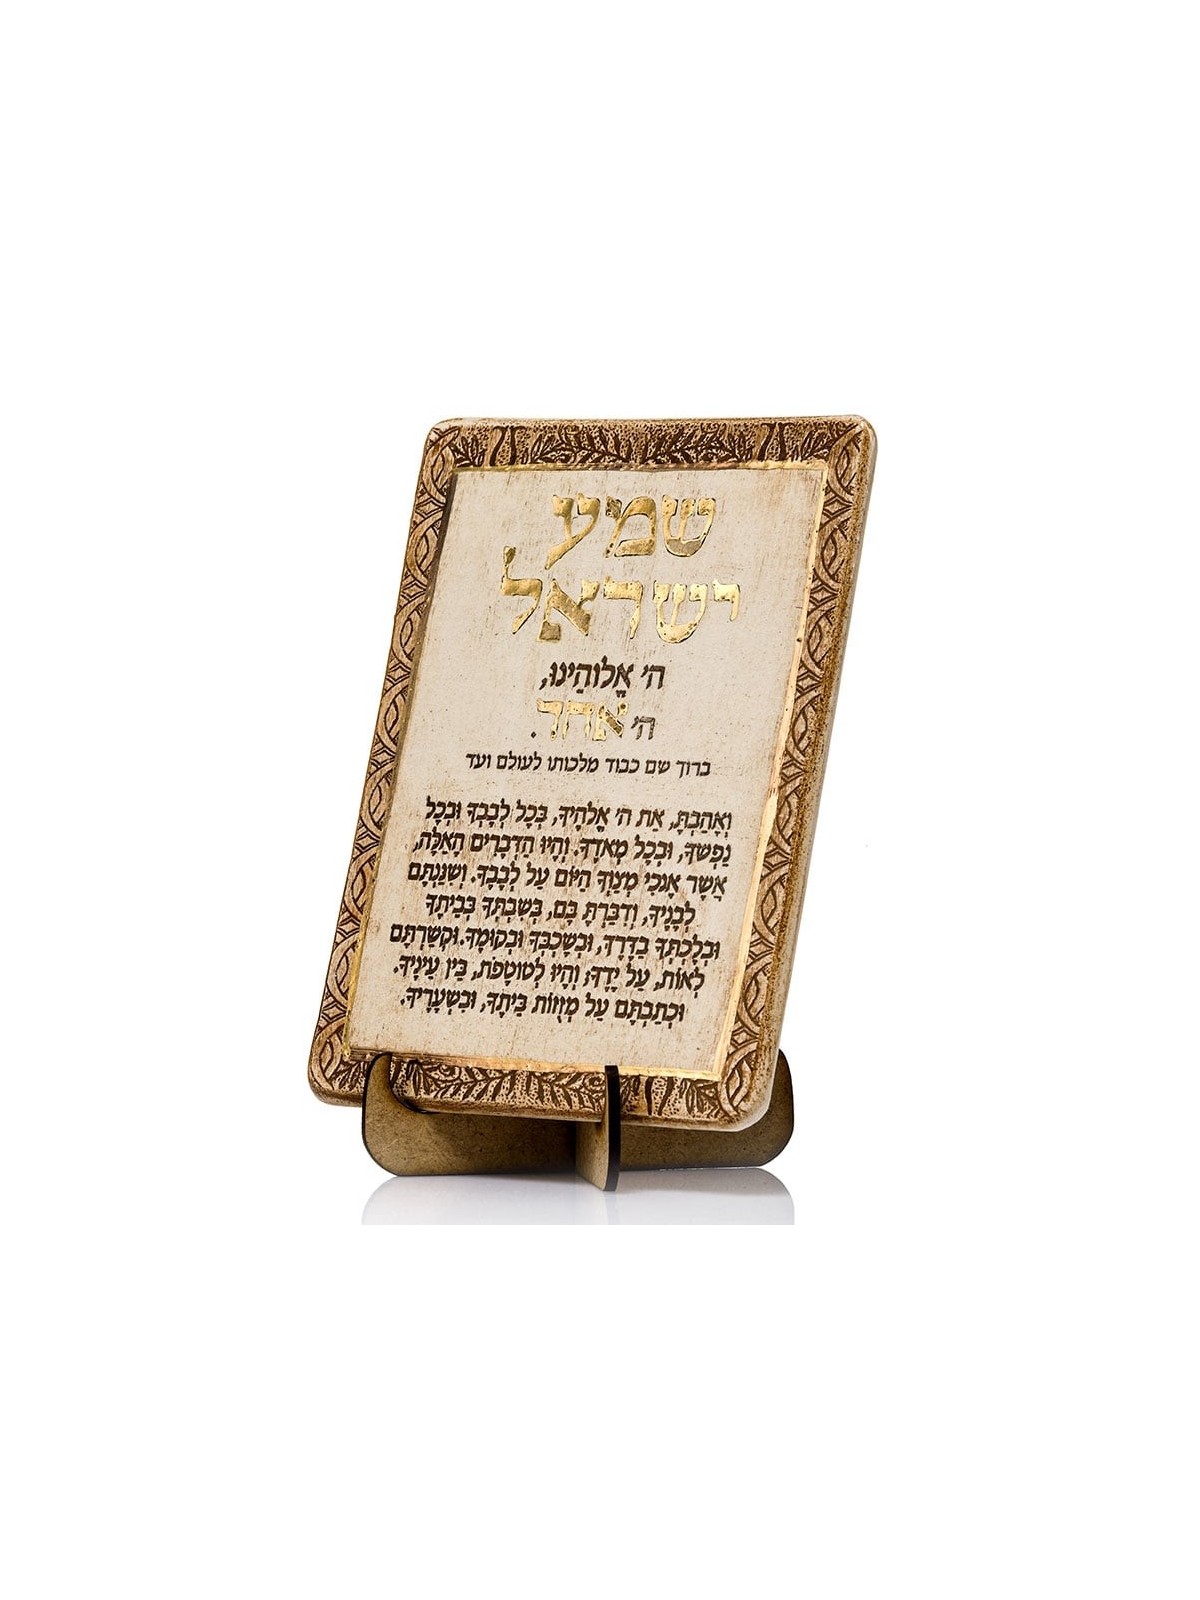 שמע
ישראל
ה׳ אֱלוֹהֵינוּ,
ה׳ אחד.
ברוך שם כבוד מלכותו לעולם ועד
וְאָהַבְתָּ, אֵת ה׳ אֱלֹהֶיךָ, בְּכָל לְבָבְךָ וּבְכָל
נַפְשְׁךָ, וּבְכָל מְאֹדֶךָ. וְהָיוּ הַדְּבָרִים הָאֵלֶּה,
אֲשֶׁר אָנֹכִי מְצַוְּךָ הַיּוֹם עַל לְבָבֶךָ. וְשִׁנַּנְתָּם
לְבָנֶיךָ, וְדִבַּרְתָּ בָּם, בְּשִׁבְתְּךָ בְּבֵיתֶךָ
וּבְלֶכְתְּךָ בַדֶּרֶךְ, וּבְשָׁכְבְּךָ וּבְקוּמֶךָ. וּקְשַׁרְתָּם
לְאוֹת, עַל יָדֶךָ; וְהָיוּ לְטוֹטָפֹת, בֵּין עֵינֶיךָ.
וּכְתַבְתָּם עַל מְזֻזוֹת בֵּיתֶךָ, וּבִשְׁעָרֶיךָ.